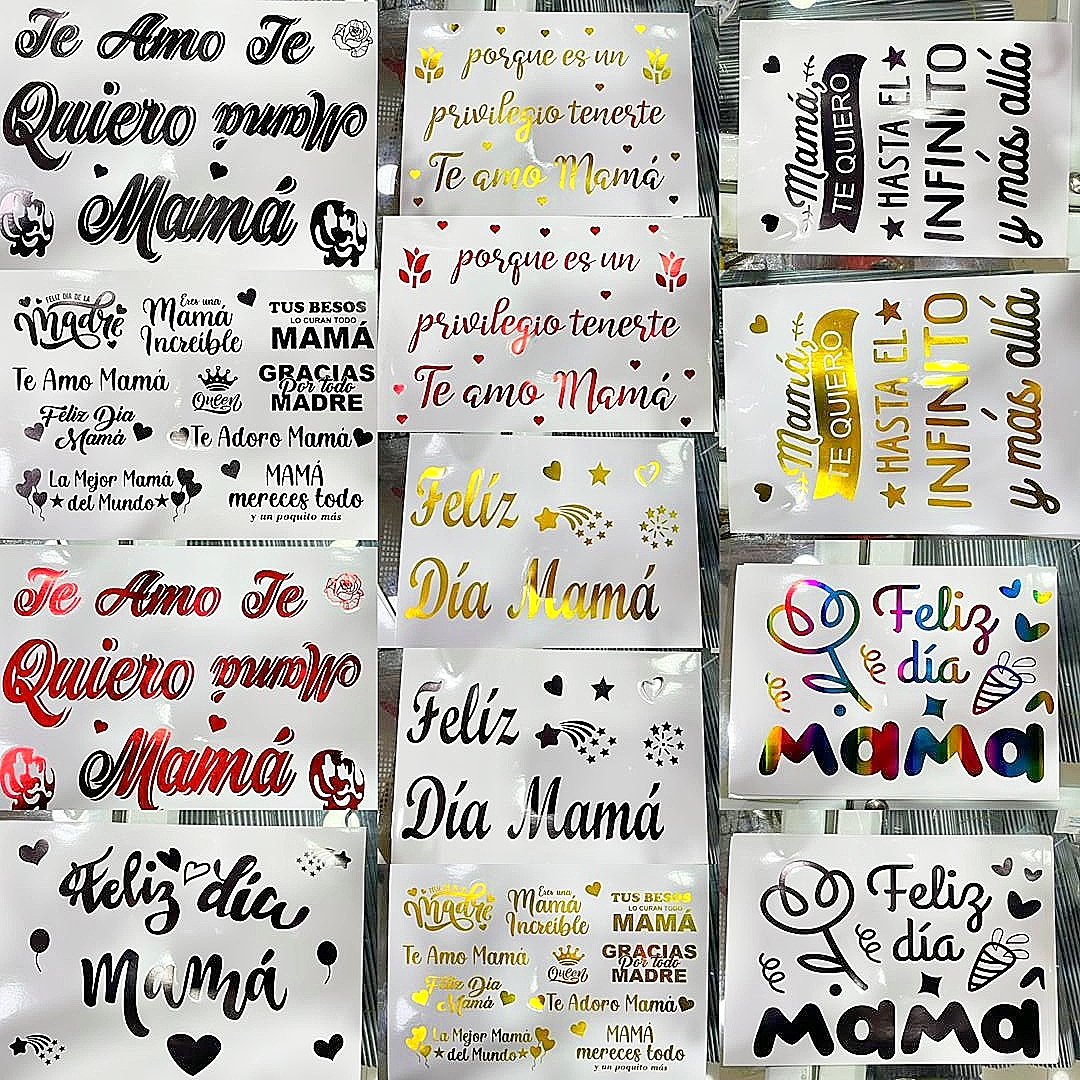 Te Amo Te
Quiero Mamá
Mamá
FELIZ DIA DE LA
Madre
Eres una
Mamá
Increíble
TUS BESOS
LO CURAN TODO
MAMÁ
Te Amo Mamá
Queen
GRACIAS
Por todo
MADRE
Féliz Dia
Mamá
Te Adoro Mamá
La Mejor Mamá
del Mundo
MAMÁ
mereces todo
y un poquito más
Te Amo Te
Quiero Mamá
Mamá
Feliz día
Mamá
porque es un
privilegio tenerte
Te amo Mamá
porque es un
privilegio tenerte
Te amo Mamá
Felíz
Día Mamá
Felíz
Día Mamá
Madre
Eres una
Mamá
Increíble
TUS BESOS
LO CURAN TODO
MAMÁ
Te Amo Mamá
Queen
GRACIAS
Por todo
MADRE
Féliz Dia
Mamá
Te Adoro Mamá
La Mejor Mamá
del Mundo
MAMÁ
mereces todo
y un poquito más
Mamá,
TE QUIERO
HASTA EL
INFINITO
y más allá
Mamá,
TE QUIERO
HASTA EL
INFINITO
y más allá
Feliz
día
MaMa
Feliz
día
MaMa